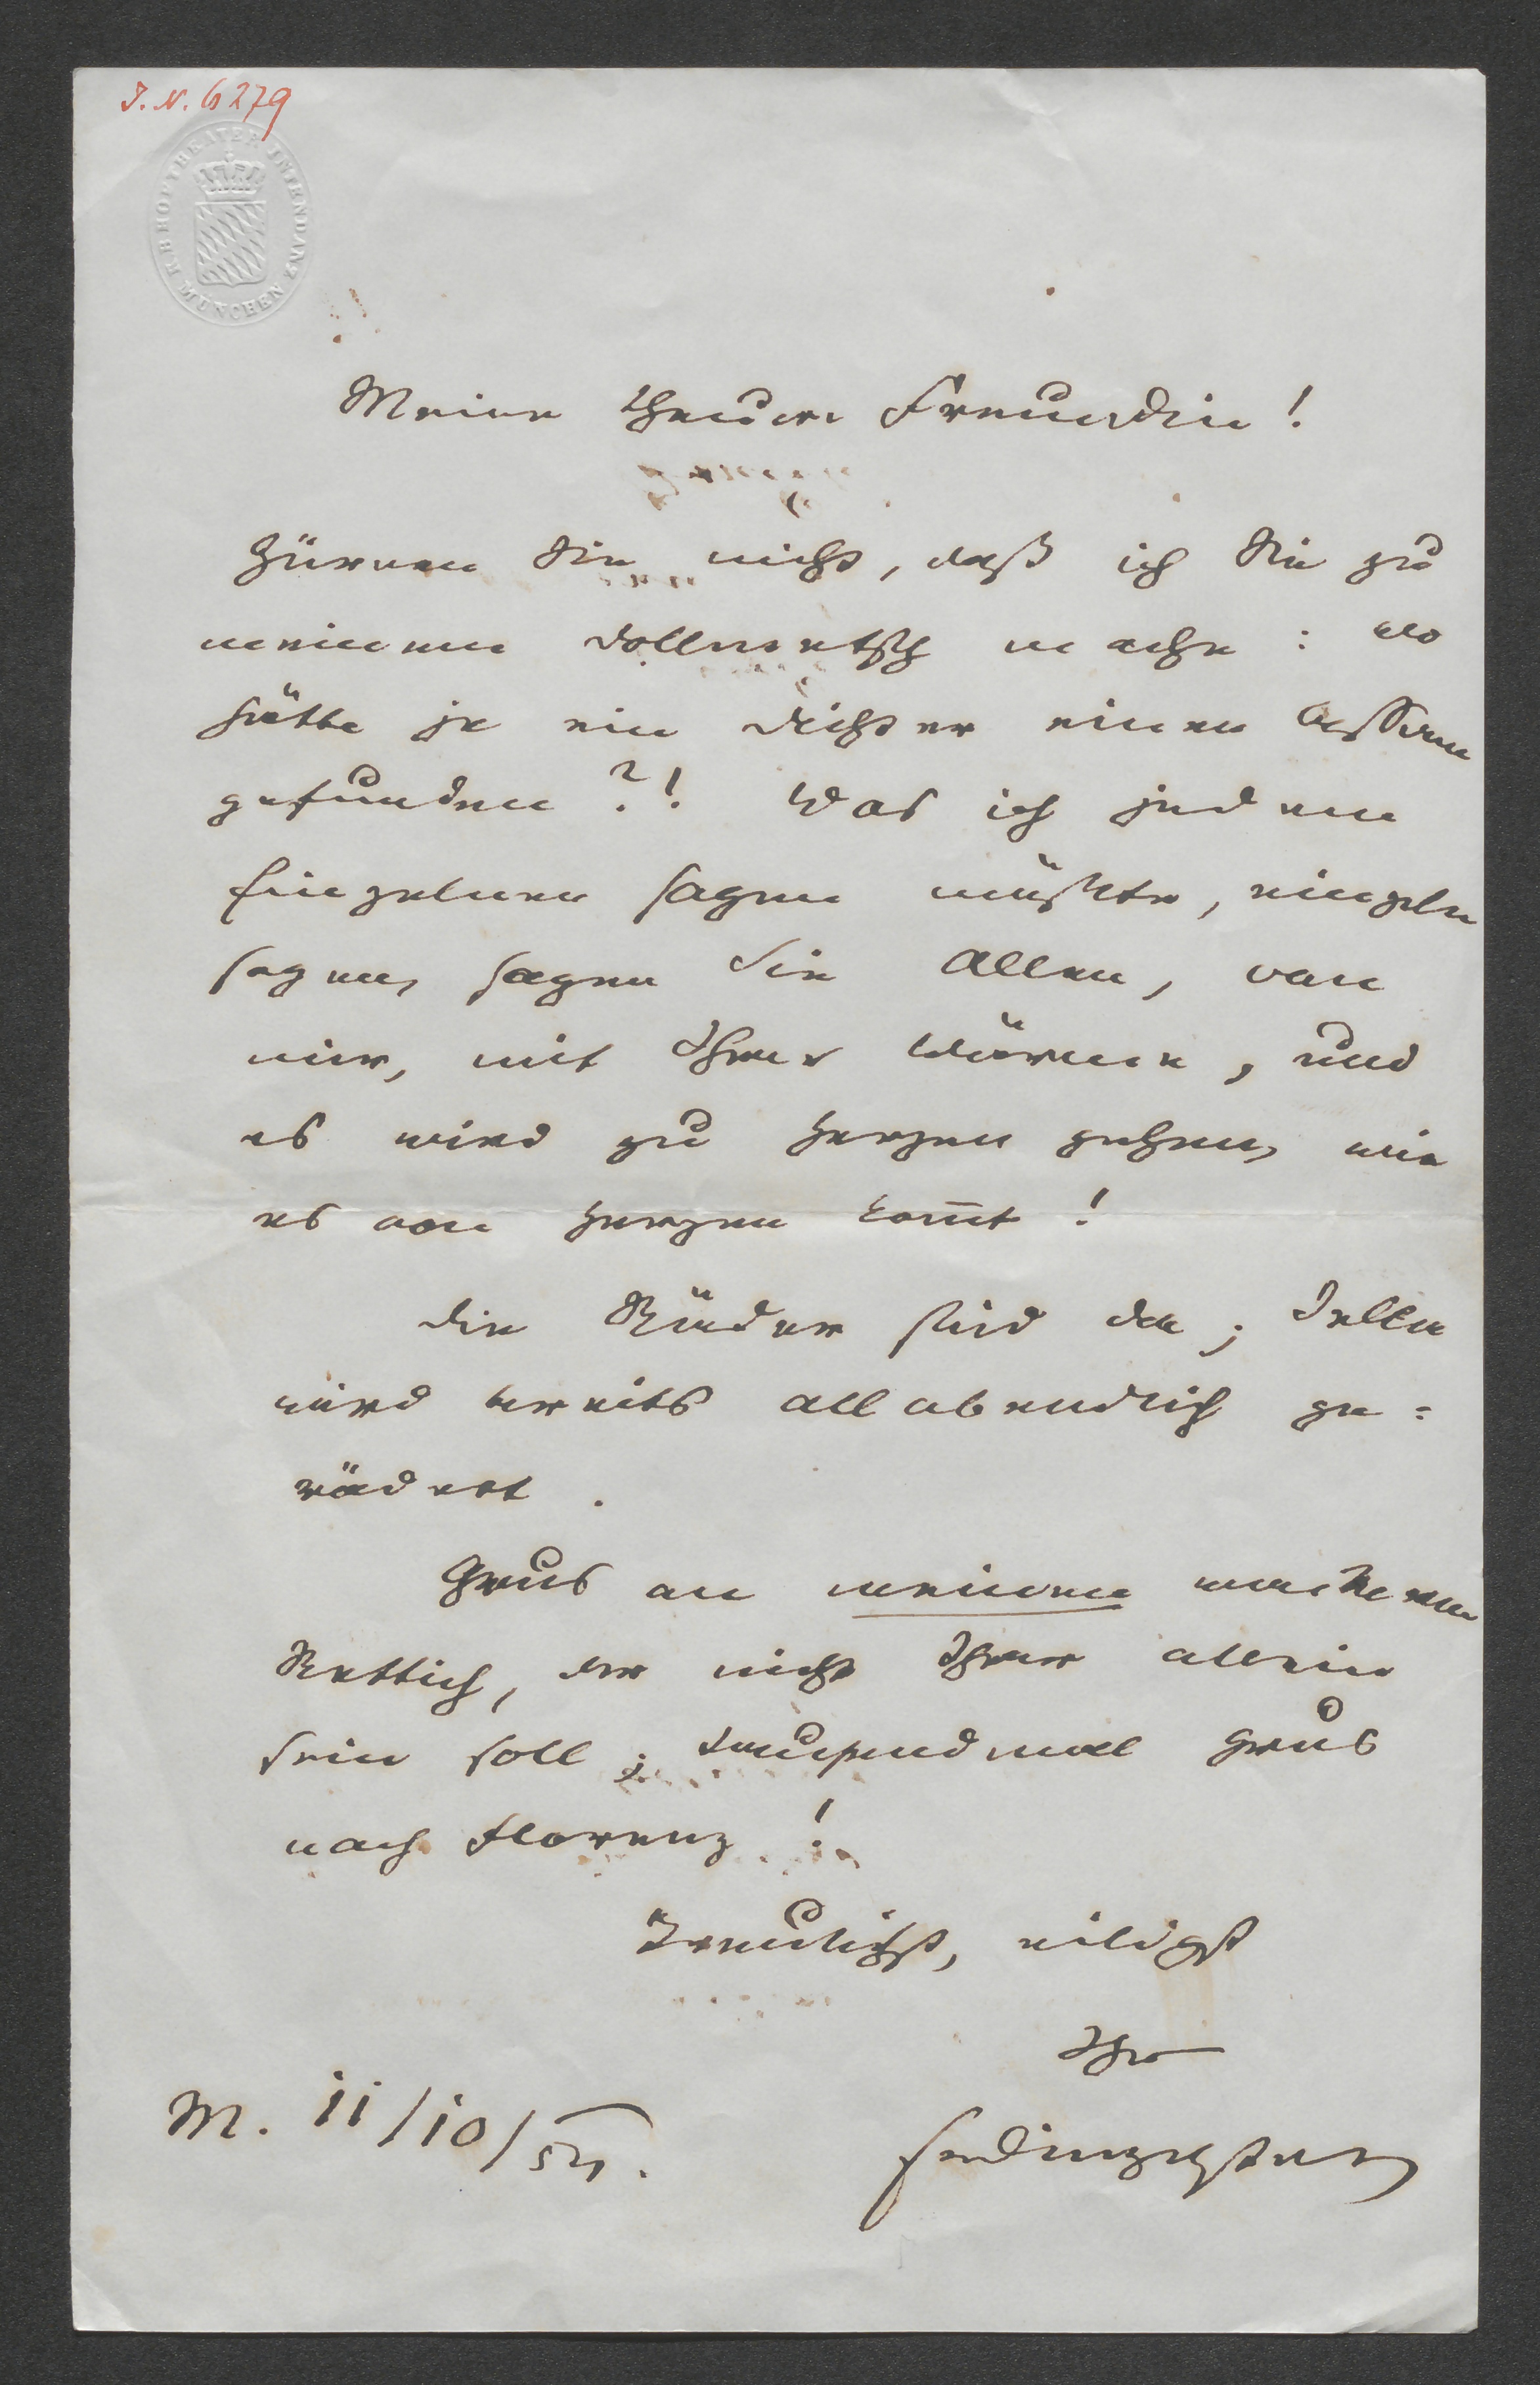 J. N. 6279
K. B. HOFTHEATER INTENDANZ
MÜNCHEN
Meine theure Freundin!
Zürnen Sie nicht, daß ich Sie zu
meinem Dollmetsch mache: wo
hätte je ein Dichter einen bessern
gefunden?! Was ich jedem
Einzelnen sagen müßte, einzeln
sagen, sagen Sie Allen, von
mir, mit Ihrer Wärme, und
es wird zu Herzen gehen, wie
es von Herzen kom̅t!
Die Räder sind da;
wird bereits allabendlich ge=
rädert.
Grus an meinen wackeren
Rettich, der nicht Ihrer allein
sein soll; tausendmal Grus
nach Florenz!
Treulichst, eiligst
Ihr
M. 11/10/54.
FrDingelstedt